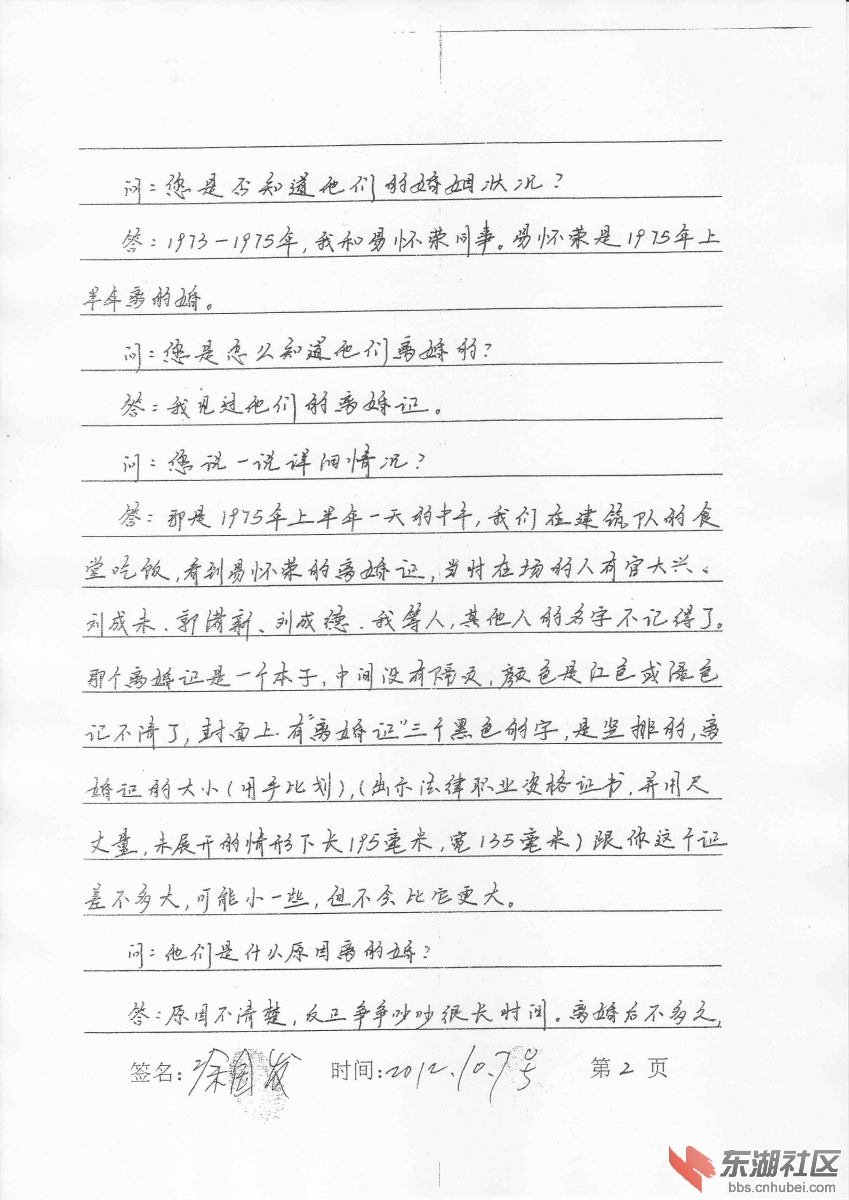 问:您是否知道他们的婚姻状况?
答:1973-1975年,我和易怀荣同事。易怀荣是1975年上
半年离的婚。
问:您是怎么知道他们离婚的?
答:我见过他们的离婚证。
问:您说一说详细情况?
答:那是1975年上半年一天的中午,我们在建筑队的食
堂吃饭,看到易怀荣的离婚证,当时在场的人有官大兴、
刘成未、郭满新、刘成德、我等人,其他人的名字不记得了。
那个离婚证是一个本子,中间没有隔页,颜色是红色或绿色
记不清了,封面上有"离婚证"三个黑色的字,是竖排的,离
婚证的大小(用手比划),(出示法律职业资格证书,并用尺
丈量,未展开的情形下长195毫米,宽135毫米)跟你这个证
差不多大,可能小一些,但不会比它更大。
问:他们是什么原因离的婚?
答:原因不清楚,反正争争吵吵很长时间。离婚后不多久,
签名: 时间:2012.10.7号 第2页
东湖社区
bbs.cnhubei.com